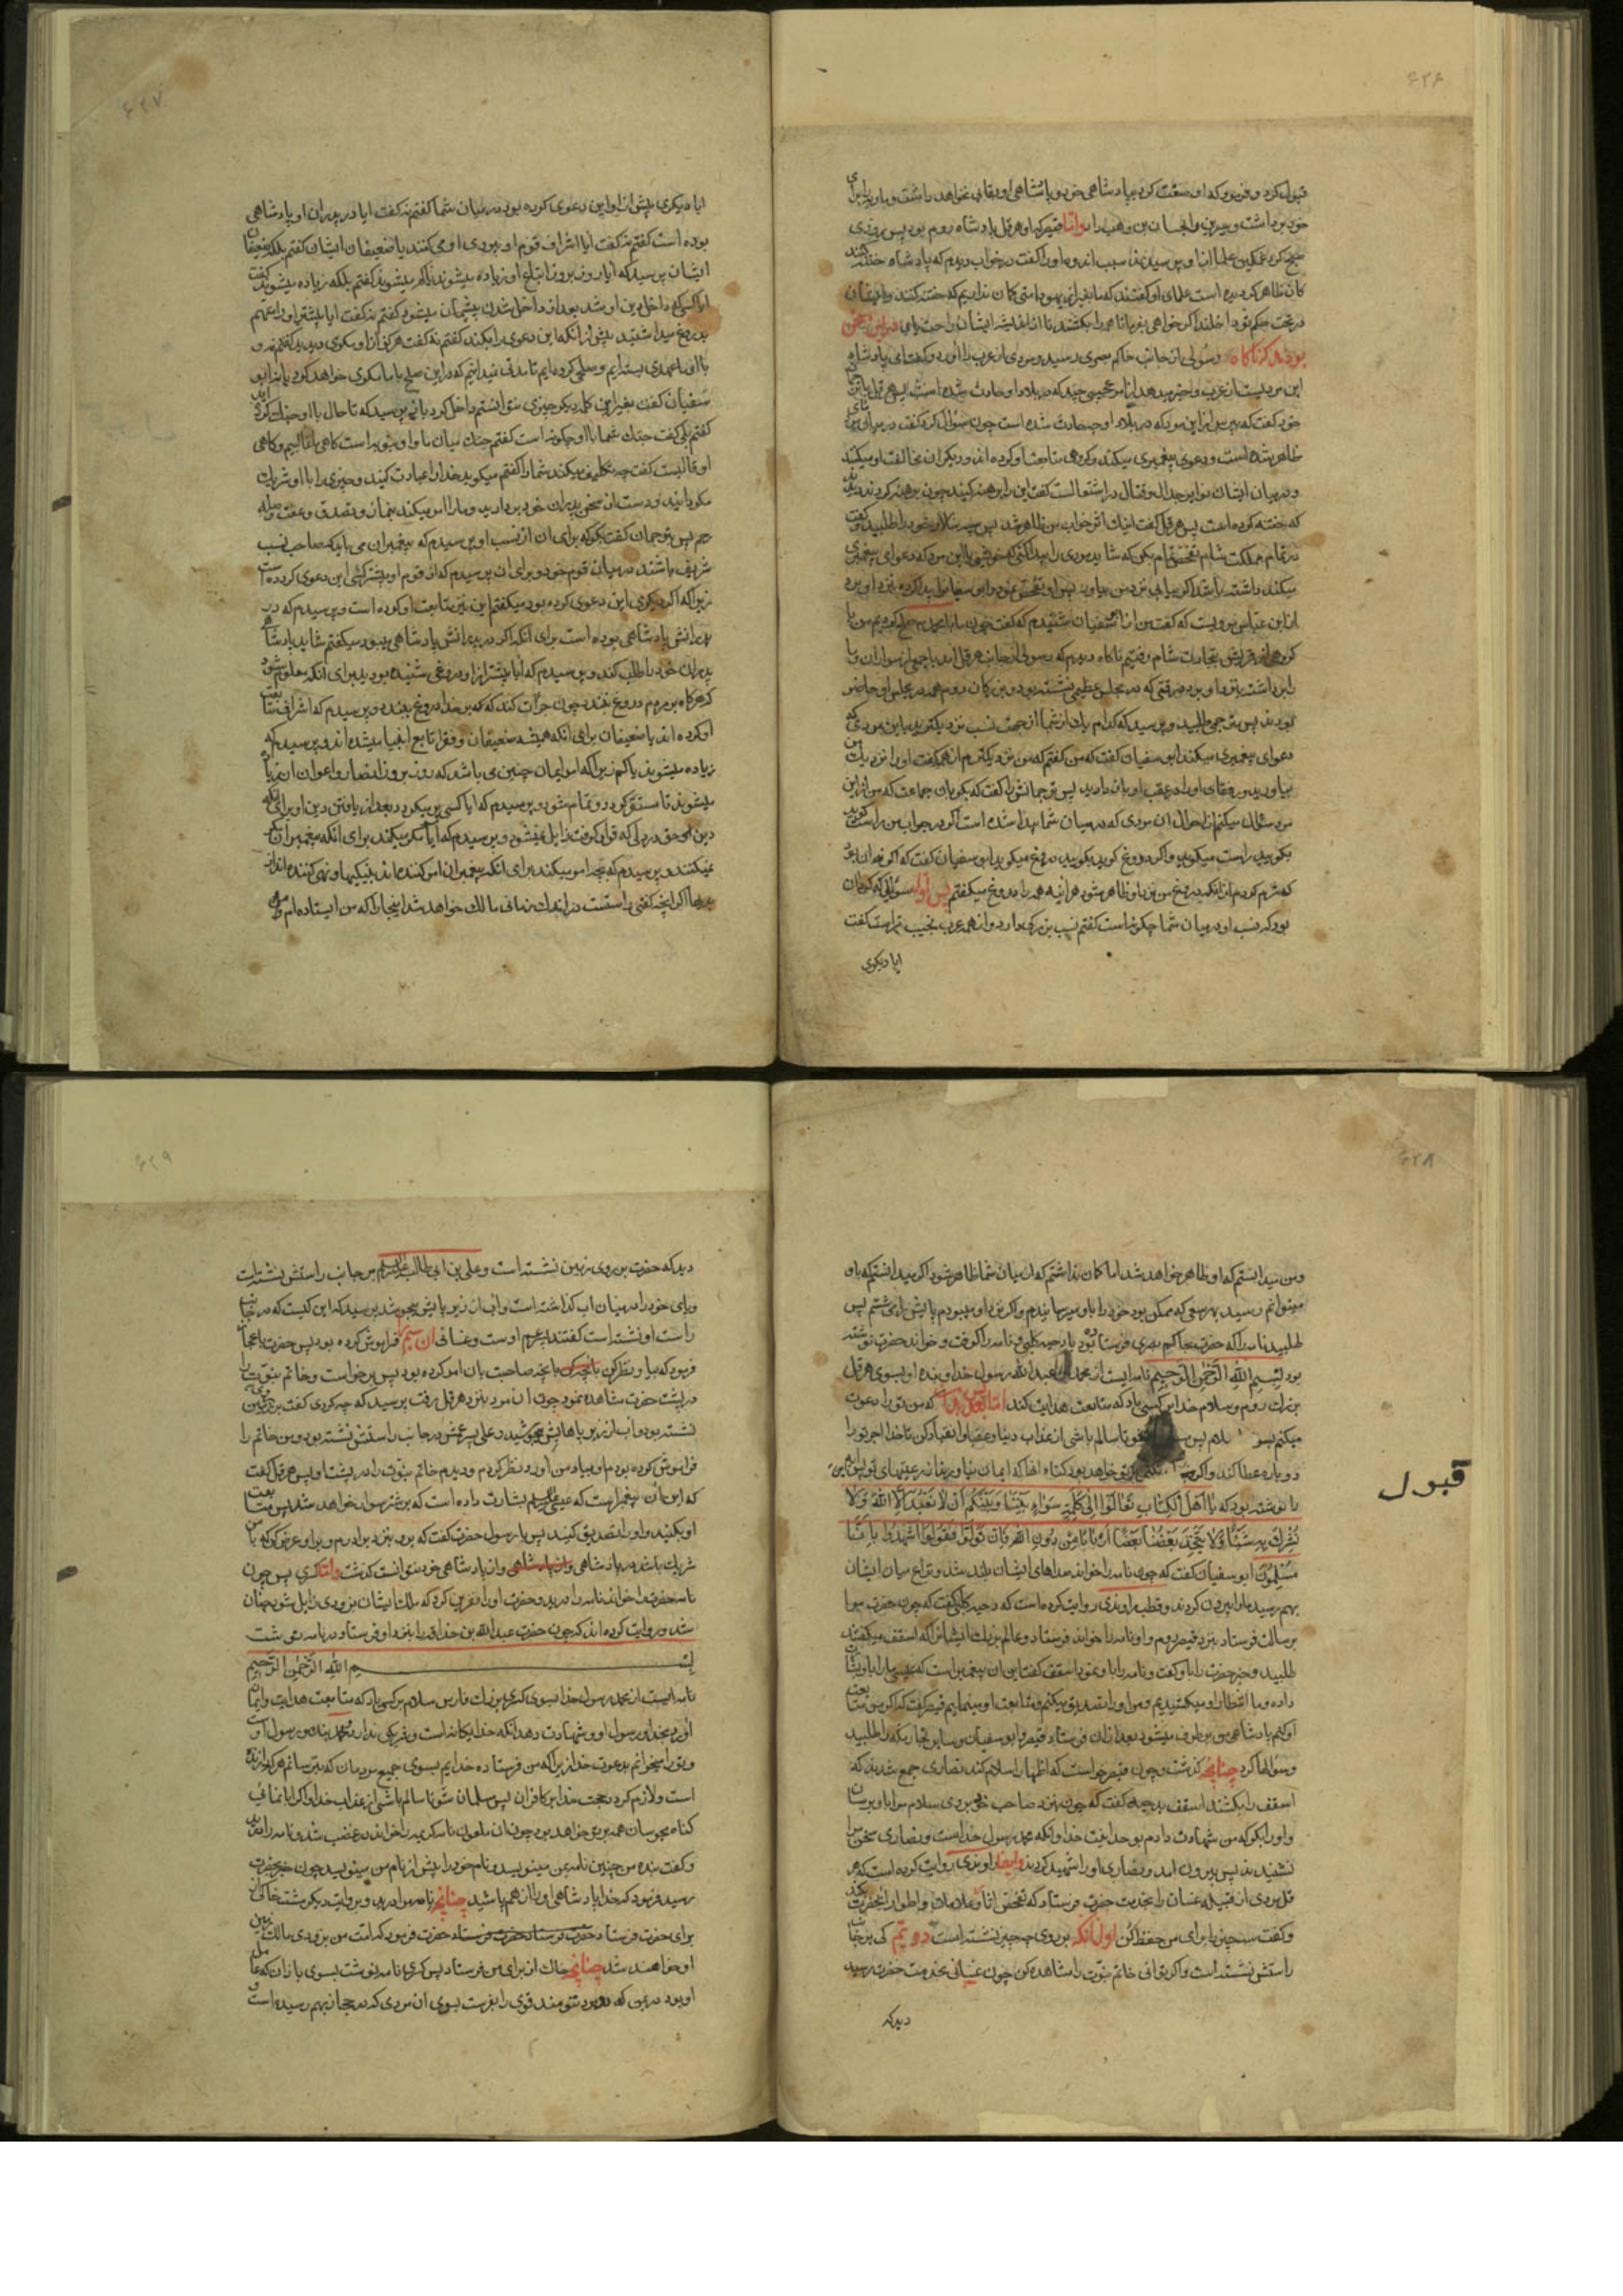 ۶۲۶
قبول کرد و فرمود که او ضنت کرد بپادشاهی خود و پادشاهی او بقائی نخواهد داشت و ماریه را برای
خود برداشت و سیرین را بحسان بن وهب داد و اما قیصر که او هرقل پادشاه روم بود پس روزی
صبح کرد غمگین علما و پرسیدند سبب اندوه او را گفت در خواب دیدم که پادشاه ختنه کنند
کان ظاهر کردیده است علمای او گفتند که ما بغیر از یهود امتی کان نداریم که ختنه کنند و ایشان
در تحت حکم تو داخلند اگر خواهی بفرما تا همه را بکشند تا از اندیشه ایشان راحت یابی در این سخن
بودند که ناگاه رسولی از جانب حاکم بصری رسید و مردی از عرب را آورد و گفت ای پادشاه
این مردیست از عرب و خبر میدهد از امر عجیبی چند که در بلاد او حادث شده است پس هرقل با ترجمان
خود گفت که بپرس از این مرد که در بلاد او چه حادث شده است چون سؤال کرد گفت در میان ما مردی
ظاهر شده است و دعوی پیغمبری میکند و گروهی متابعت او کرده اند و دیگران مخالفت او میکنند
و در میان ایشان نوایر جدال و قتال در اشتعالست گفت این را برهنه کنید چون برهنه کردند دیدند
که ختنه کرده است پس هرقل گفت اینک اثر خواب من ظاهر شد پس سپهسالار خود را طلبید و گفت
در تمام مملکت شام تفحص تمام بکن که شاید مردی را پیدا کنی که خویش با این مرد که دعوای پیغمبری
میکند داشته باشد اگر بیابی نزد من بیاور
از ابن عباس مرویست که گفت من از ابوسفیان شنیدم که گفت چون ما با محمد صلح کردیم من با
گروهی از قریش بتجارت شام رفتیم ناگاه دیدم که رسولی از جانب هرقل آمد با جمعی از سواران و ما
را برداشت و نزد او برد در وقتی که در مجلس عظیمی نشسته بود و بزرگان روم همه در مجلس او حاضر
بودند پس مترجمی طلبید و پرسید که کدام یک از شما از جهت نسب نزدیکترید باین مردی که
دعوای پیغمبری میکند ابوسفیان گفت که من گفتم که من نزدیکترم از همه گفت او را نزدیک من
بیاورید و رفقای او را در عقب او بازدارید پس ترجمانش را گفت که بگو بآن جماعت که من از این
مرد سؤال میکنم از احوال آن مردی که در میان شما پیدا شده است اگر در جواب من راست گوید
بگویید راست میگوید و اگر دروغ گوید بگویید دروغ میگوید ابوسفیان گفت که اگر نه آن بود
که شرم کردم از آنکه دروغ من بر او ظاهر شود هرآینه همه را دروغ میگفتم پس اول سؤالی که کرد آن
بود که نسب او در میان شما چگونه است گفتم نسب بزرگی دارد و از همه عرب نجیب تر است گفت
ایا دیگری
۶۲۷
ایا دیگری پیش از او این دعوی کرده بود در میان شما گفتم نه گفت ایا در پدران او پادشاهی
بوده است گفتم نه گفت ایا اشراف قوم او پیروی او می کنند یا ضعیفان ایشان گفتم بلکه ضعیفان
ایشان پرسید که ایا روز بروز اتباع او زیاده میشوند یا کم میشوند گفتم بلکه زیاده میشوند گفت
ایا کسی که داخل دین او شد بعد از داخل شدن پشیمان میشود گفتم نه گفت ایا پیشتر او را متهم
بدروغ میداشتید پیش از آنکه این دعوی را بکند گفتم نه گفت هرگز از او مکری دیدید گفتم نه و
با او ما عهدی بسته ایم و صلحی کرده ایم تا مدتی نمیدانیم که در این صلح با ما مکری خواهد کرد یا نه ابو
سفیان گفت بغیر این کلمه دیگر چیزی نتوانستم داخل کرد باز پرسید که تا حال با او جنگ کرده اید
گفتم بلی گفت جنگ شما با او چگونه است گفتم جنک میان ما و او بنوبه است کاهی ما غالبیم و کاهی
او غالبست گفت چه تکلیف میکند شما را گفتم میگوید خدا را عبادت کنید و چیزی را با او شریک
مگردانید و دست از سخن پدران خود بردارید و ما را امر میکند بنماز و تصدق و عفت و صله
رحم پس بترجمان گفت بگو که برای آن از نسب او پرسیدم که پیغمبران می باید که صاحب نسب
شریف باشند در میان قوم خود و برای آن پرسیدم که از قوم او پیشتر کسی این دعوی کرده است
زیرا که اگر دیگری این دعوی کرده بود میگفتم این نیز متابعت او کرده است و پرسیدم که در
پدرانش پادشاهی بوده است برای آنکه اگر در پدرانش پادشاهی میبود میگفتم شاید پادشاهی
پدران خود را طلب کند و پرسیدم که ایا پیشتر از او دروغی شنیده بودید برای آنکه معلوم شود
که هرگاه بر مردم دروغ نبندد چون جرات کند که بر خدا دروغ ببندد و پرسیدم که اشراف متابعت
او کرده اند یا ضعیفان برای آنکه همیشه ضعیفان و فقرا تابع انبیا میشده اند و پرسیدم که
زیاده میشوند یا کم زیرا که امر ایمان چنین می باشد که روز بروز انصار و اعوان آن زیاد
میشوند تا مستقر گردد و تمام شود و پرسیدم که ایا کسی بر میگردد بعد از یافتن دین او برای آنکه
دین حق در دلی که قرار گرفت زایل نمیشود و پرسیدم که ایا مکر میکند برای آنکه پیغمبران مکر
نمیکنند و پرسیدم که بچه امر میکند برای آنکه پیغمبران امر کننده اند بنیکیها و نهی کننده اند از
بدیها اگر آنچه گفتی راستست در اندک زمانی مالک خواهد شد اینجا را که من ایستاده ام و من
۶۲۸
و من میدانستم که او ظاهر خواهد شد اما گمان نداشتم که از میان شما ظاهر شود اگر میدانستم که باو
میتوانم رسید بهر سعی که ممکن بود خود را باو میرسانیدم و اگر نزد او میبودم پایش را می شستم پس
طلبید نامه را که حضرت بحاکم بصری فرستاده بود با دحیه کلبی و نامه را گرفت و خواند حضرت نوشته
بود بسم الله الرحمن الرحیم نامه ایست از محمد بن عبدالله رسول خدا و بنده او بسوی هرقل
بزرگ روم و سلام خدا بر کسی باد که متابعت هدایت کند اما بعد بدرستی که من تو را دعوت
میکنم بسوی
دوباره عطا کند و اگر
را نوشته بود که یا اهل الکتاب تعالوا الی کلمة سواء بیننا و بینکم ان لا نعبد الا الله و لا
نشرک به شیئا و لا یتخذ بعضنا بعضا اربابا من دون الله فان تولوا فقولوا اشهدوا بانا
مسلمون ابوسفیان گفت که چون نامه را خواند صداهای ایشان بلند شد و نزاع میان ایشان
بهم رسید ما را بیرون کردند و قطب راوندی روایت کرده است که دحیه کلبی گفت که چون حضرت مرا
برسالت فرستاد بنزد قیصر روم و او نامه را خواند فرستاد و عالم بزرگ ایشانرا که اسقف میگفتند
طلبید و خبر حضرت را باو گفت و نامه را باو نمود اسقف گفت این آن پیغمبر است که عیسی ما را باو بشارت
داده و ما انتظار او میکشیدیم و من او را تصدیق میکنم و متابعت او مینمایم قیصر گفت که اگر من متابعت
او کنم پادشاهی من برطرف میشود بعد از آن فرستاد قیصر و ابوسفیان و سایر تجار مکه را طلبید
و سؤالها کرد چنانچه گذشت و چون قیصر خواست که اظهار اسلام کند نصاری جمع شدند که
اسقف را بکشند اسقف بدحیه گفت که چون بنزد صاحب خود بروی سلام مرا باو برسان
و او را بگو که من شهادت دادم بوحدانیت خدا و آنکه محمد رسول خداست و نصاری سخن مرا
نشنیدند پس بیرون آمد و نصاری او را شهید کردند و ایضا راوندی روایت کرده است که هر
قل مردی از قبیله غسان را بخدمت حضرت فرستاد که تحقق آثار و علامات و اطوار آنحضرت بکند
و گفت سه چیز را برای من حفظ کن اول آنکه بر روی چه چیز نشسته است دویم کی بر جانب
راستش نشسته است و اگر توانی خاتم نبوت را مشاهده کن چون غسانی بخدمت حضرت رسید
دید که
قبول
۶۲۹
دید که حضرت بر روی زمین نشسته است و علی بن ابی طالب علیه السلام بر جانب راستش نشسته است
و پای خود را در میان آب گذاشته است و آب از زیر پایش میجوشد پرسید که این کیست که در جانب
راست او نشسته است گفتند پسر عم اوست و غسانی آن سیم را فراموش کرده بود پس حضرت باعجاز
فرمود که بیا و نظر کن بآنچه صاحبت بآن امر کرده بود پس برخواست و خاتم نبوت را
در پشت حضرت مشاهده نمود چون آن مرد بنزد هرقل رفت پرسید که چه کردی گفت بر روی زمین
نشسته بود و آب از زیر پاهایش میجوشید و علی پسر عمش در جانب راستش نشسته بود و من خاتم را
فراموش کرده بودم او بیاد من آورد و نظر کردم و دیدم خاتم نبوت را در پشت او پس هرقل گفت
که این آن پیغمبر است که عیسی علیه السلام بشارت داده است که بر شتر سوار خواهد شد پس متابعت
او بکنید و او را تصدیق کنید پس با رسول حضرت گفت که برو بنزد برادرم و بر او عرض کن که با من
شریک باشد در پادشاهی و از پادشاهی خود نتوانست گذشت و اما کسری پس چون
نامه حضرت را خواند نامه را درید و حضرت او را نفرین کرد که ملک ایشان بزودی زایل شود چنان
شد و روایت کرده اند که چون حضرت عبدالله بن حذافه را بنزد او فرستاد در نامه نوشت
بسم الله الرحمن الرحیم
نامه ایست از محمد رسول خدا بسوی کسری بزرگ فارس سلام بر کسی باد که متابعت هدایت و ایمان
آورد بخدا و رسول او و شهادت دهد آنکه خدا یگانه است و شریکی ندارد و محمد بنده و رسول اوست
و تو را میخوانم بدعوت خدا زیرا که من فرستاده خدایم بسوی جمیع مردمان که بترسانم هر که را زنده
است و لازم گردد حجت خدا بر کافران پس مسلمان شو تا سالم باشی از عذاب خدا و اگر ابا نمائی
گناه مجوسان همه بر تو خواهد بود چون آن ملعون نامه کریمه را خواند در غضب شد و نامه را درید
و گفت بنده من چنین نامه بمن مینویسد و نام خود را پیش از نام من مینویسد چون خبر بحضرت
رسید فرمود که خدا پادشاهی او را از هم پاشید چنانچه نامه مرا درید و بروایت دیگر مشت خاکی
برای حضرت فرستاد حضرت فرمود که امت من بزودی مالک زمین
او خواهند شد چنانچه خاک از برای من فرستاد پس کسری نامه نوشت بسوی باذان که عامل
او بود در یمن که دو مرد تنومند قوی را بفرست بسوی آن مردی که در حجاز بهم رسیده است و